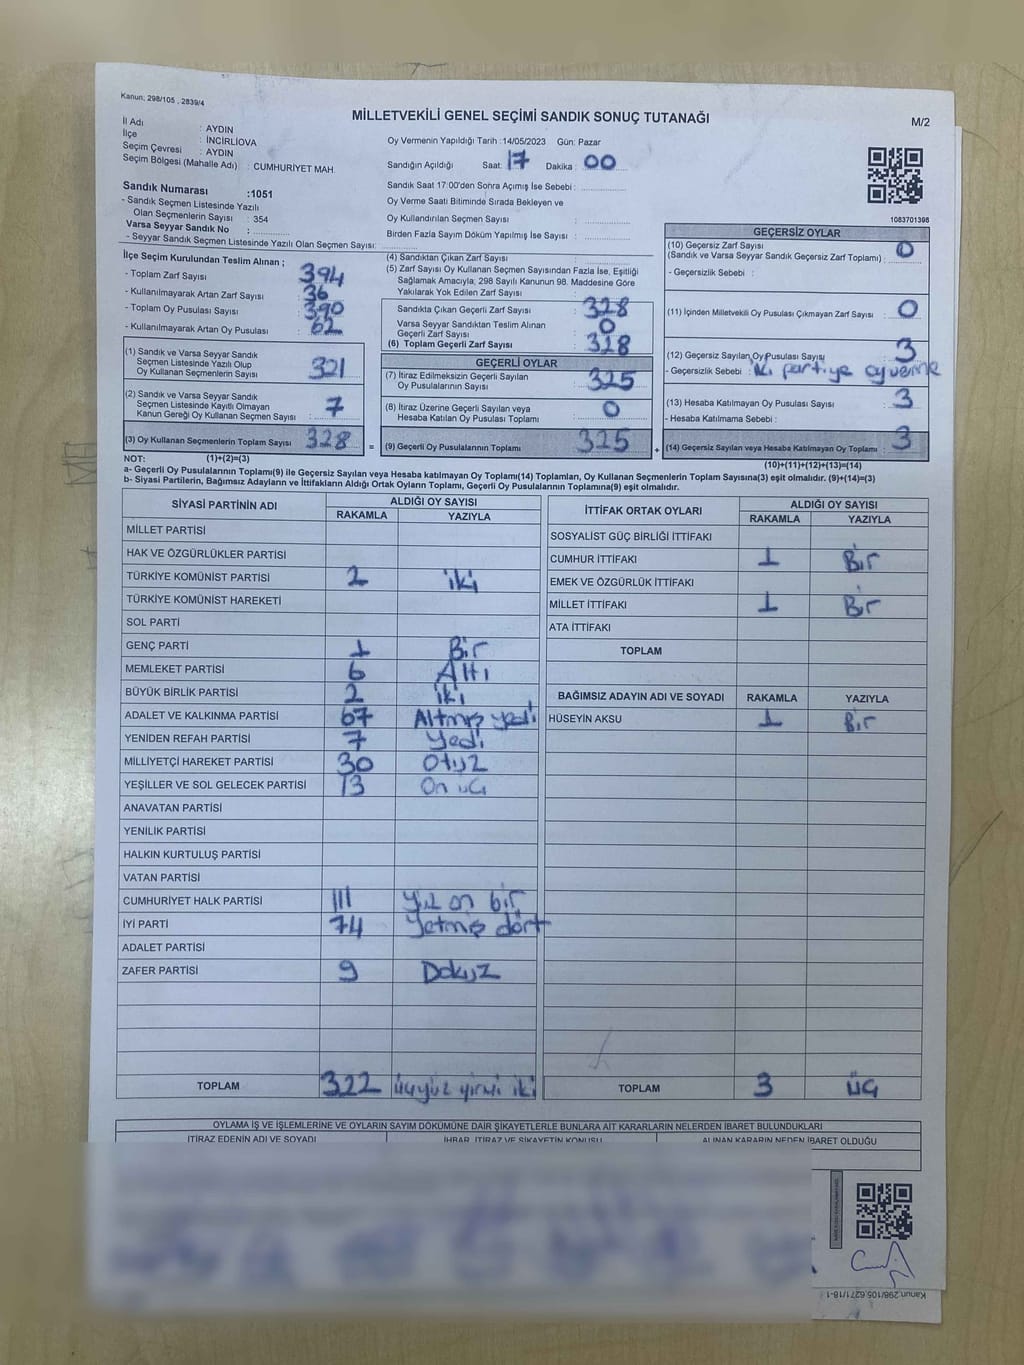 Kanun; 298/105 , 2839/4
MİLLETVEKİLİ GENEL SEÇİMİ SANDIK SONUÇ TUTANAĞI
M/2
İl Adı : AYDIN
İlçe : İNCİRLİOVA
Seçim Çevresi : AYDIN
Seçim Bölgesi (Mahalle Adı) : CUMHURİYET MAH.
Sandık Numarası :1051
- Sandık Seçmen Listesinde Yazılı
Olan Seçmenlerin Sayısı : 354
Varsa Seyyar Sandık No :
- Seyyar Sandık Seçmen Listesinde Yazılı Olan Seçmen Sayısı:
Oy Vermenin Yapıldığı Tarih :14/05/2023 Gün: Pazar
Sandığın Açıldığı Saat: 17 Dakika : 00
Sandık Saat 17:00'den Sonra Açımış İse Sebebi :
Oy Verme Saati Bitiminde Sırada Bekleyen ve
Oy Kullandırılan Seçmen Sayısı :
Birden Fazla Sayım Döküm Yapılmış İse Sayısı :
1083701398
İlçe Seçim Kurulundan Teslim Alınan ;
- Toplam Zarf Sayısı : 394
- Kullanılmayarak Artan Zarf Sayısı : 36
- Toplam Oy Pusulası Sayısı : 390
- Kullanılmayarak Artan Oy Pusulası : 62
(1) Sandık ve Varsa Seyyar Sandık
Seçmen Listesinde Yazılı Olup
Oy Kullanan Seçmenlerin Sayısı : 321
(2) Sandık ve Varsa Seyyar Sandık
Seçmen Listesinde Kayıtlı Olmayan
Kanun Gereği Oy Kullanan Seçmen Sayısı : 7
(3) Oy Kullanan Seçmenlerin Toplam Sayısı : 328 =
(4) Sandıktan Çıkan Zarf Sayısı :
(5) Zarf Sayısı Oy Kullanan Seçmen Sayısından Fazla İse, Eşitliği
Sağlamak Amacıyla, 298 Sayılı Kanunun 98. Maddesine Göre
Yakılarak Yok Edilen Zarf Sayısı :
Sandıkta Çıkan Geçerli Zarf Sayısı : 328
Varsa Seyyar Sandıktan Teslim Alınan
Geçerli Zarf Sayısı : 0
(6) Toplam Geçerli Zarf Sayısı : 328
GEÇERLİ OYLAR
(7) İtiraz Edilmeksizin Geçerli Sayılan
Oy Pusulalarının Sayısı : 325
(8) İtiraz Üzerine Geçerli Sayılan veya
Hesaba Katılan Oy Pusulası Toplamı : 0
(9) Geçerli Oy Pusulalarının Toplamı : 325 +
GEÇERSİZ OYLAR
(10) Geçersiz Zarf Sayısı
(Sandık ve Varsa Seyyar Sandık Geçersiz Zarf Toplamı) : 0
- Geçersizlik Sebebi :
(11) İçinden Milletvekili Oy Pusulası Çıkmayan Zarf Sayısı : 0
(12) Geçersiz Sayılan Oy Pusulası Sayısı : 3
- Geçersizlik Sebebi : iki partiye oy verme
(13) Hesaba Katılmayan Oy Pusulası Sayısı : 3
- Hesaba Katılmama Sebebi :
(14) Geçersiz Sayılan veya Hesaba Katılmayan Oy Toplamı : 3
NOT: (1)+(2)=(3)
(10)+(11)+(12)+(13)=(14)
a- Geçerli Oy Pusulalarının Toplamı(9) ile Geçersiz Sayılan veya Hesaba katılmayan Oy Toplamı(14) Toplamları, Oy Kullanan Seçmenlerin Toplam Sayısına(3) eşit olmalıdır. (9)+(14)=(3)
b- Siyasi Partilerin, Bağımsız Adayların ve İttifakların Aldığı Ortak Oyların Toplamı, Geçerli Oy Pusulalarının Toplamına(9) eşit olmalıdır.
SİYASİ PARTİNİN ADI ALDIĞI OY SAYISI
RAKAMLA YAZIYLA
MİLLET PARTİSİ
HAK VE ÖZGÜRLÜKLER PARTİSİ
TÜRKİYE KOMÜNİST PARTİSİ 2 iki
TÜRKİYE KOMÜNİST HAREKETİ
SOL PARTİ
GENÇ PARTİ 1 Bir
MEMLEKET PARTİSİ 6 Altı
BÜYÜK BİRLİK PARTİSİ 2 iki
ADALET VE KALKINMA PARTİSİ 67 Altmış yedi
YENİDEN REFAH PARTİSİ 7 Yedi
MİLLİYETÇİ HAREKET PARTİSİ 30 Otuz
YEŞİLLER VE SOL GELECEK PARTİSİ 13 On üç
ANAVATAN PARTİSİ
YENİLİK PARTİSİ
HALKIN KURTULUŞ PARTİSİ
VATAN PARTİSİ
CUMHURİYET HALK PARTİSİ 111 Yüz on bir
İYİ PARTİ 74 Yetmiş dört
ADALET PARTİSİ
ZAFER PARTİSİ 9 Dokuz
TOPLAM 322 üçyüz yirmi iki
İTTİFAK ORTAK OYLARI ALDIĞI OY SAYISI
RAKAMLA YAZIYLA
SOSYALİST GÜÇ BİRLİĞİ İTTİFAKI
CUMHUR İTTİFAKI 1 Bir
EMEK VE ÖZGÜRLÜK İTTİFAKI
MİLLET İTTİFAKI 1 Bir
ATA İTTİFAKI
TOPLAM
BAĞIMSIZ ADAYIN ADI VE SOYADI RAKAMLA YAZIYLA
HÜSEYİN AKSU 1 Bir
TOPLAM 3 üç
OYLAMA İŞ VE İŞLEMLERİNE VE OYLARIN SAYIM DÖKÜMÜNE DAİR ŞİKAYETLERLE BUNLARA AİT KARARLARIN NELERDEN İBARET BULUNDUKLARI
İTİRAZ EDENİN ADI VE SOYADI İHBAR, İTİRAZ VE ŞİKAYETİN KONUSU ALINAN KARARIN NEDEN İBARET OLDUĞU
Kanun 298/105 627/1/18-1